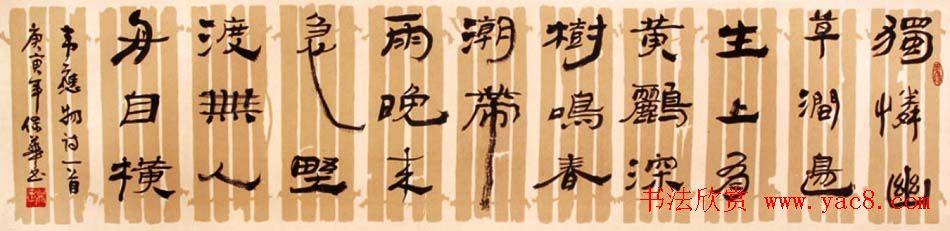 獨憐幽
草澗邊
生上有
黃鸝深
樹鳴春
潮帶
雨晚来
急野
渡無人
舟自横
韋應物詩一首
庚寅年保華书
书法欣赏 www.yac8.com